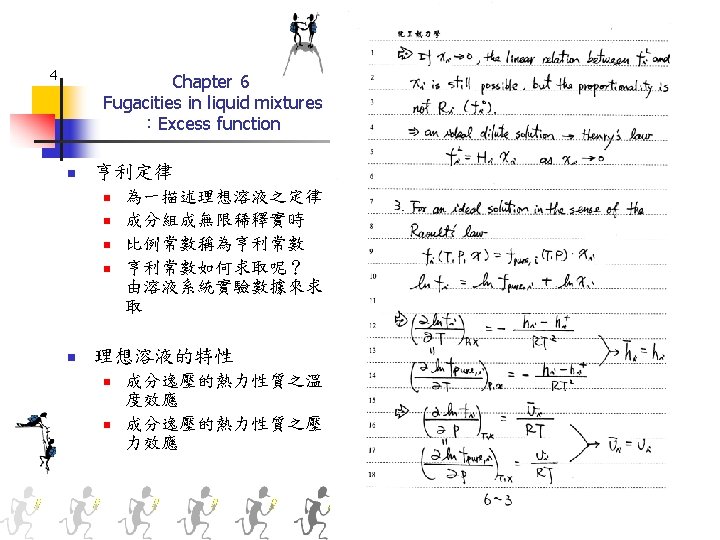 4
Chapter 6
Fugacities in liquid mixtures
：Excess function
亨利定律
為一描述理想溶液之定律
成分組成無限稀釋實時
比例常數稱為亨利常數
亨利常數如何求取呢？
由溶液系統實驗數據來求
取
理想溶液的特性
成分逸壓的熱力性質之溫
度效應
成分逸壓的熱力性質之壓
力效應
化工熱力學
1 ⇒ If xi→0, the linear relation between fi^L and
2 xi is still possible, but the proportionality is
3 not Ri (fi^o).
4 ⇒ an ideal dilute solution → Henry's law
5 fi^L = Hi xi as xi→0
6
7 3. For an ideal solution in the sense of the
8 Raoult's law
9 fi(T,P,x) = fpure,i(T,P)·xi
10 ln fi = ln fpure,i + ln xi
11
12 ⇒ (∂ln fi/∂T)P,x = − (h̄i − hi^+)/RT²
13 ‖ → h̄i = hi
14 (∂ln fpure,i/∂T)P,x = − (hi − hi^+)/RT²
15 ⇒ (∂ln fi/∂P)T,x = v̄i/RT
16 → v̄i = vi
17 (∂ln fpure,i/∂P)T,x = vi/RT
18
6-3